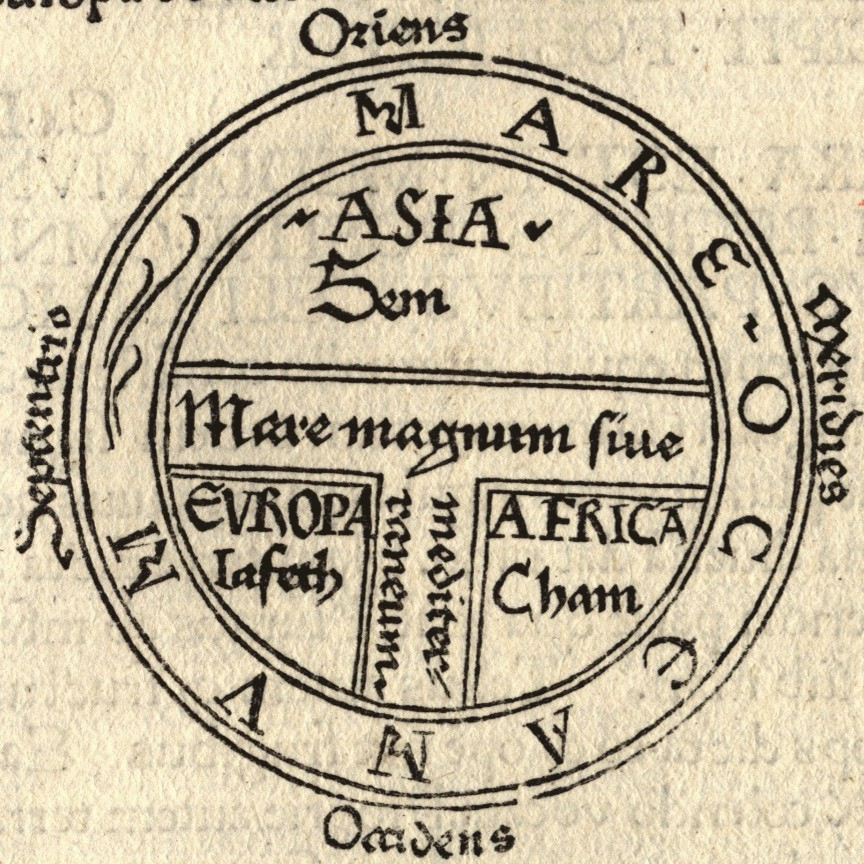 Oriens
MARE ~ OCEANVM
~ ASIA ~
Sem
Septentrio
Meridies
Mare magnum siue
mediter
raneum
EVROPA
Iafeth
AFRICA
Cham
Occidens